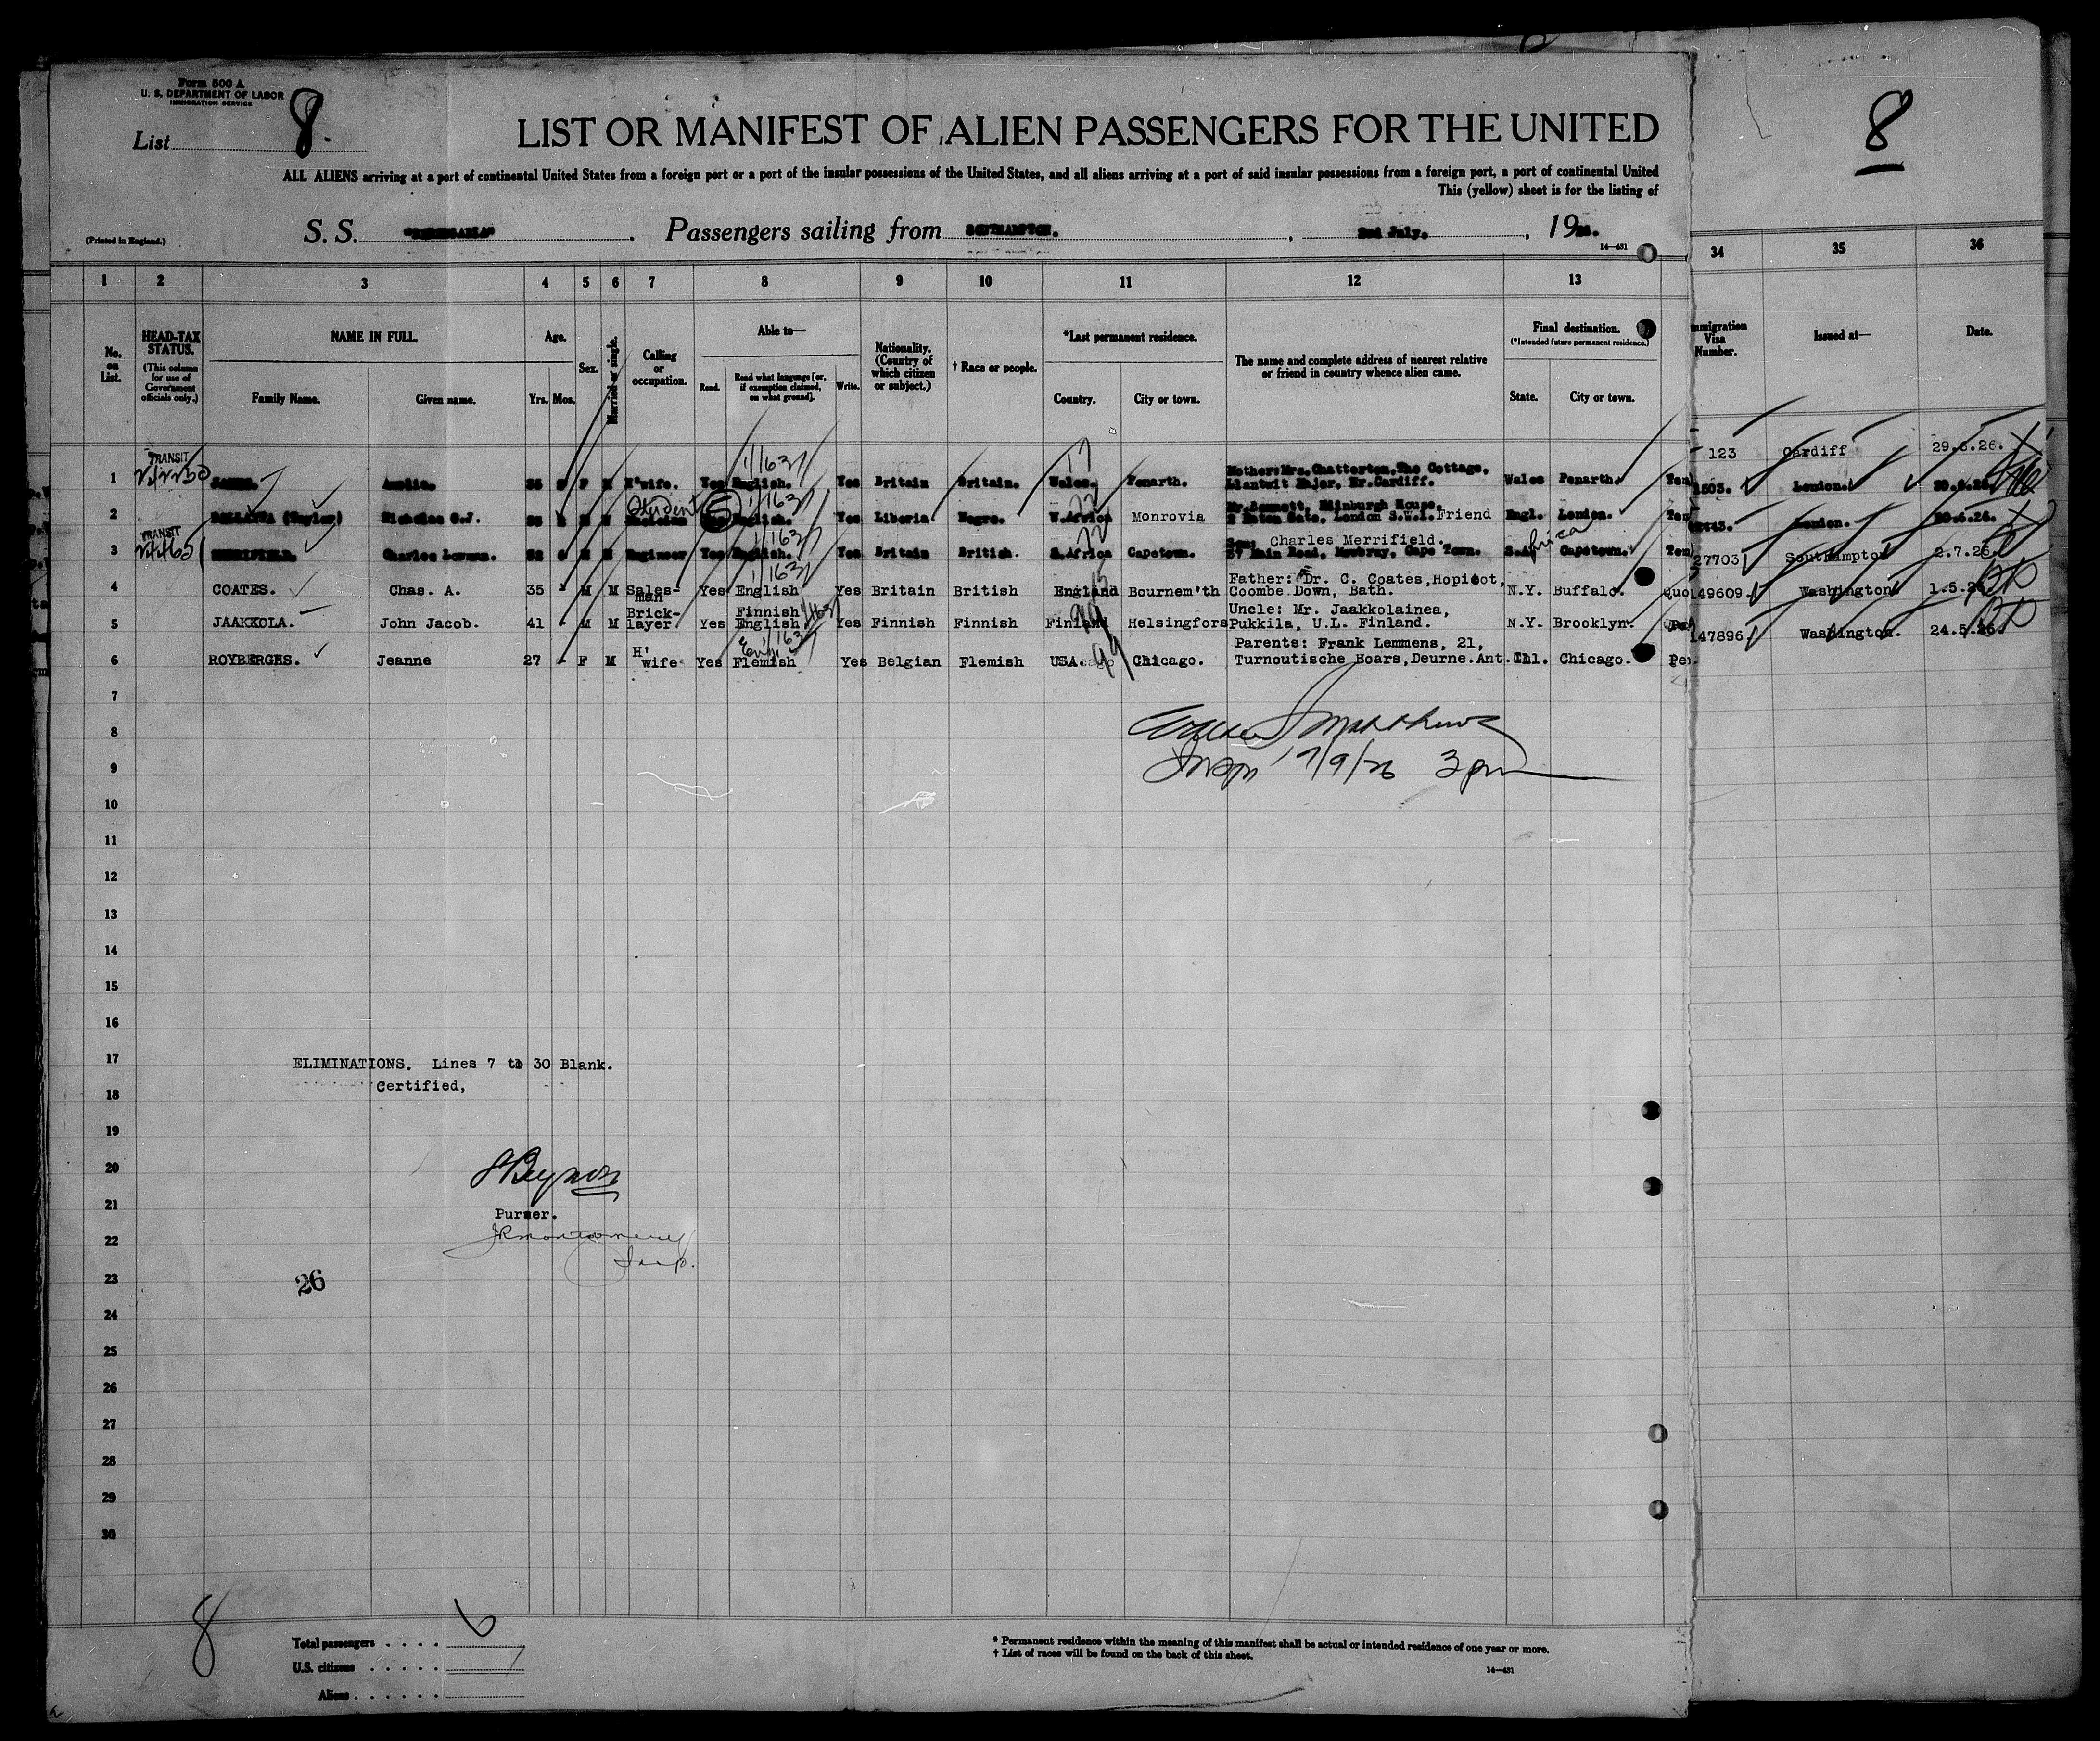 Form 500 A
U. S. DEPARTMENT OF LABOR
IMMIGRATION SERVICE
List 8.
8
LIST OR MANIFEST OF ALIEN PASSENGERS FOR THE UNITED
ALL ALIENS arriving at a port of continental United States from a foreign port or a port of the insular possessions of the United States, and all aliens arriving at a port of said insular possessions from a foreign port, a port of continental United
This (yellow) sheet is for the listing of
(Printed in England.)
S. S. "BERENGARIA". Passengers sailing from SOUTHAMPTON. , 2nd July. , 1926.
14—431
1 2 3 4 5 6 7 8 9 10 11 12 13 34 35 36
No. on List.
HEAD-TAX STATUS.
(This column for use of Government officials only.)
NAME IN FULL.
Family Name.
Given name.
Age.
Yrs. Mos.
Sex.
Married or single.
Calling or occupation.
Able to—
Read.
Read what language [or, if exemption claimed, on what ground].
Write.
Nationality. (Country of which citizen or subject.)
† Race or people.
*Last permanent residence.
Country.
City or town.
The name and complete address of nearest relative or friend in country whence alien came.
Final destination.
(*Intended future permanent residence.)
State.
City or town.
Immigration Visa Number.
Issued at—
Date.
TRANSIT
1 F M H'wife. Yes English. Yes Britain Britain. Wales. Penarth. Mother: Mrs. Chatterton, The Cottage, Llantwit Major, Nr. Cardiff. Wales Penarth. Tem 123 Cardiff 29.6.26.
Student
2 (Taylor) Nicholas Yes English. Yes Liberia Negro. W.Africa Monrovia Mr. Bennett, Edinburgh House, 2 Eaton Gate. London S.W.1. Friend Engl. London. Tem London.
TRANSIT
3 MERRIFIELD. Charles 52 M Engineer Yes English. Yes Britain British. S.Africa Capetown. Son: Charles Merrifield. 57 Main Road, Mowbray, Cape Town. S.Africa Capetown. Tem London.
4 COATES. Chas. A. 35 - M M Sales-man Yes English Yes Britain British England Bournem'th Father: Dr. C. Coates, Hopicot, Coombe Down, Bath. N.Y. Buffalo. Quo 27703 Southampton 2.7.26.
5 JAAKKOLA. John Jacob. 41 - M M Brick-layer. Yes Finnish English Yes Finnish Finnish Finland Helsingfors Uncle: Mr. Jaakkolainea, Pukkila, U.L. Finland. N.Y. Brooklyn. 149609. Washington 1.5.26.
6 ROYBERGHS. Jeanne 27 - F M H'wife Yes Flemish Yes Belgian Flemish USA. Chicago. Parents: Frank Lemmens, 21, Turnoutische Boars, Deurne. Ant. Ill. Chicago. Per. 147896 Washington. 24.5.26.
7
8
9
Insp 7/9/26 3 pm
10
11
12
13
14
15
16
17
ELIMINATIONS. Lines 7 to 30 Blank.
Certified,
18
19
20
21
Purser.
22
JR Montgomery
Insp.
23
26
24
25
26
27
28
29
30
8
Total passengers . . . . 6
U.S. citizens . . . . .
Aliens . . . . . .
* Permanent residence within the meaning of this manifest shall be actual or intended residence of one year or more.
† List of races will be found on the back of this sheet.
14—431